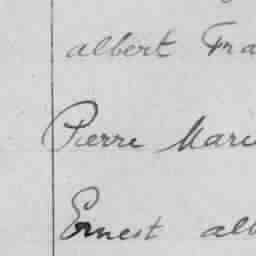 albert Fra
Pierre Marie
Ernest alb